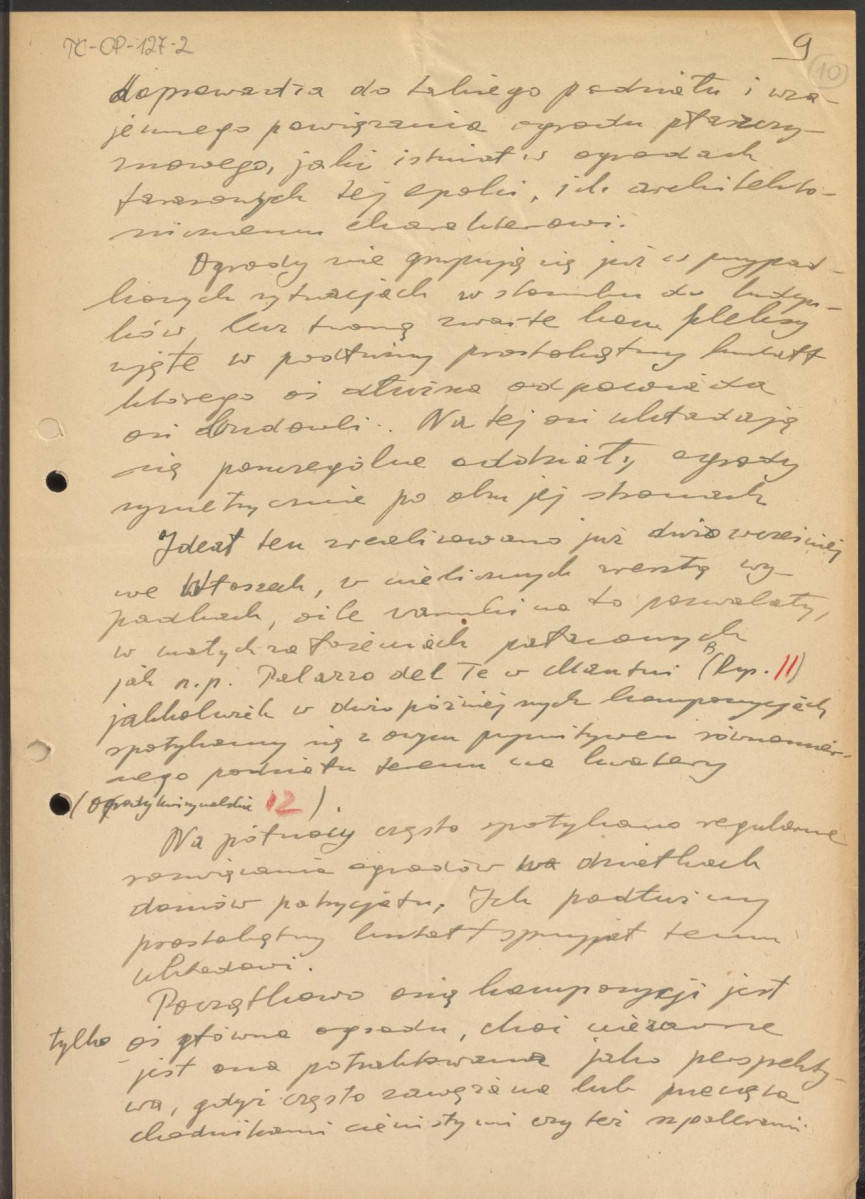 TC-CP-127-2
9
10
doprowadza do takiego podziału i wza-
jemnego powiązania ogrodu płaszczy-
znowego, jaki istniał w ogrodach
tarasowych tej epoki, ich architekto-
nicznemu charakterowi.
Ogrody nie grupują się już w przypad-
kowych sytuacjach w stosunku do budyn-
ków lecz tworzą zwarte kompleksy
ujęte w podłużny prostokątny kształt
którego oś dłuższa odpowiada
osi budowli. Na tej osi układają
się poszczególne oddziały, ogrody
symetrycznie po obu jej stronach
Ideał ten zrealizowano już dużo wcześniej
we Włoszech, w nielicznych zresztą wy-
padkach, o ile warunki na to pozwalały,
w małych założeniach pałacowych
jak n.p. Palazzo del Te w Mantui (Ryc. 11)
jakkolwiek w dużo późniejszych kompozycjach
spotykamy się z owym prymitywem równomier-
nego podziału terenu na kwatery
(Ogrody kwirynalskie 12).
Na północy często spotykano regularne
rozwiązania ogrodów na działkach
domów patrycjatu. Ich podłużny
prostokątny kształt sprzyjał temu
układowi.
Początkowo osią kompozycji jest
tylko oś główna ogrodu, choć nie zawsze
jest ona potraktowana jako perspekty-
wa, gdyż często zawężana lub przecięta
chodnikami cienistymi czy też szpalerami